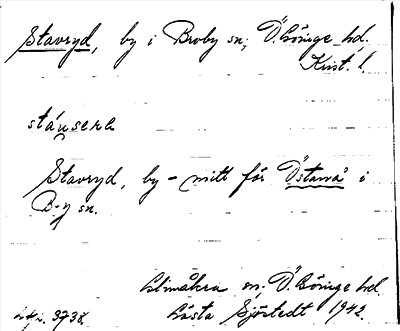 Stavryd, by i Broby sn; Ö. Göinge hd.
Krist. l.
Stavryd, by - mitt för Östanå i
B-y sn.
Glimåkra sn, Ö. Göinge hd.
3738. Gösta Sjöstedt 1942.